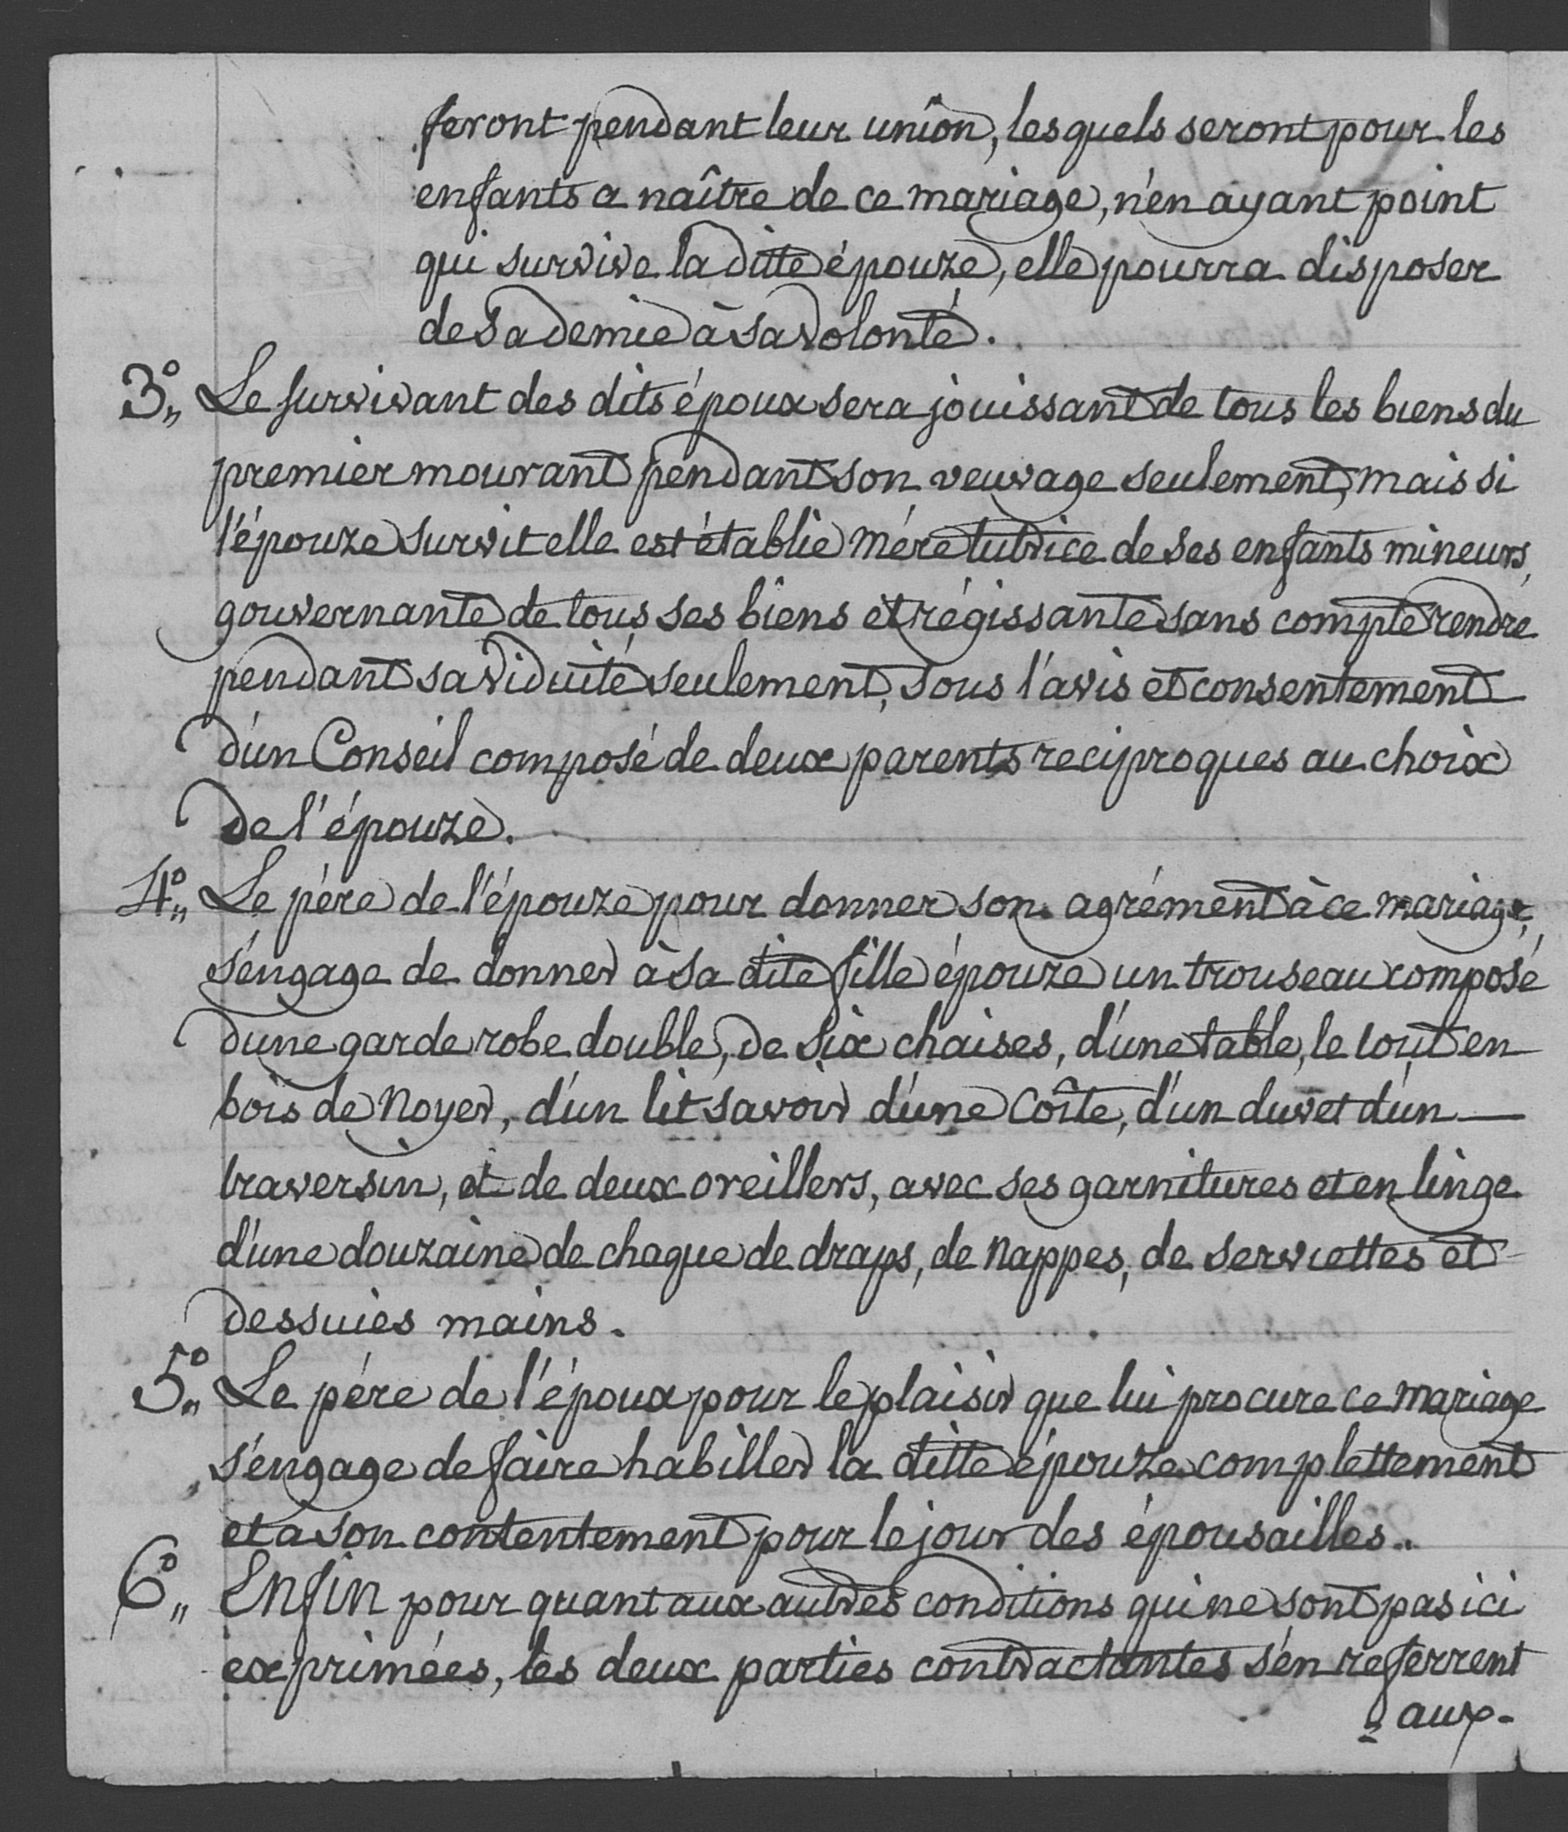 feront pendant leur unîon, lesquels seront pour les
enfants a naître de ce mariage, n'en ayant point
qui survive la ditte épouze, elle pourra disposer
de sa demie à sa volonté.
3°„ Le survivant des dits époux sera jouissant de tous les biens du
premier mourant pendant son veuvage seulement, mais si
l'épouze survit elle est établie mére tutrice de ses enfants mineurs,
gouvernante de tous ses biens et régissante sans compte rendre
pendant sa viduité seulement, sous l'avis et consentement
d'un Conseil composé de deux parents reciproques au choix
de l'épouze.
4°„ Le pére de l'épouze pour donner son agrément à ce mariage,
s'engage de donner à sa dite fille épouze un trouseau composé
d'une garde robe double, de six chaises, d'une table, le tout en
bois de Noyer, d'un lit savoir d'une Coîte, d'un duvet d'un
traversin, et de deux oreillers, avec ses garnitures et en linge
d'une douzaine de chaque de draps, de nappes, de serviettes et
dessuies mains.
5°„ Le pére de l'époux pour le plaisir que lui procure ce mariage
s'engage de faire habiller la ditte épouze complettement
et a son contentement pour le jour des épousailles.
6°„ Enfin pour quant aux autres conditions qui ne sont pas ici
exprimées, les deux parties contractantes s'en referrent
aux-